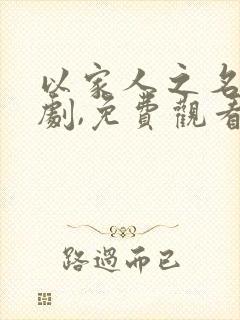 以家人之名
劇,免費觀看
路過而已